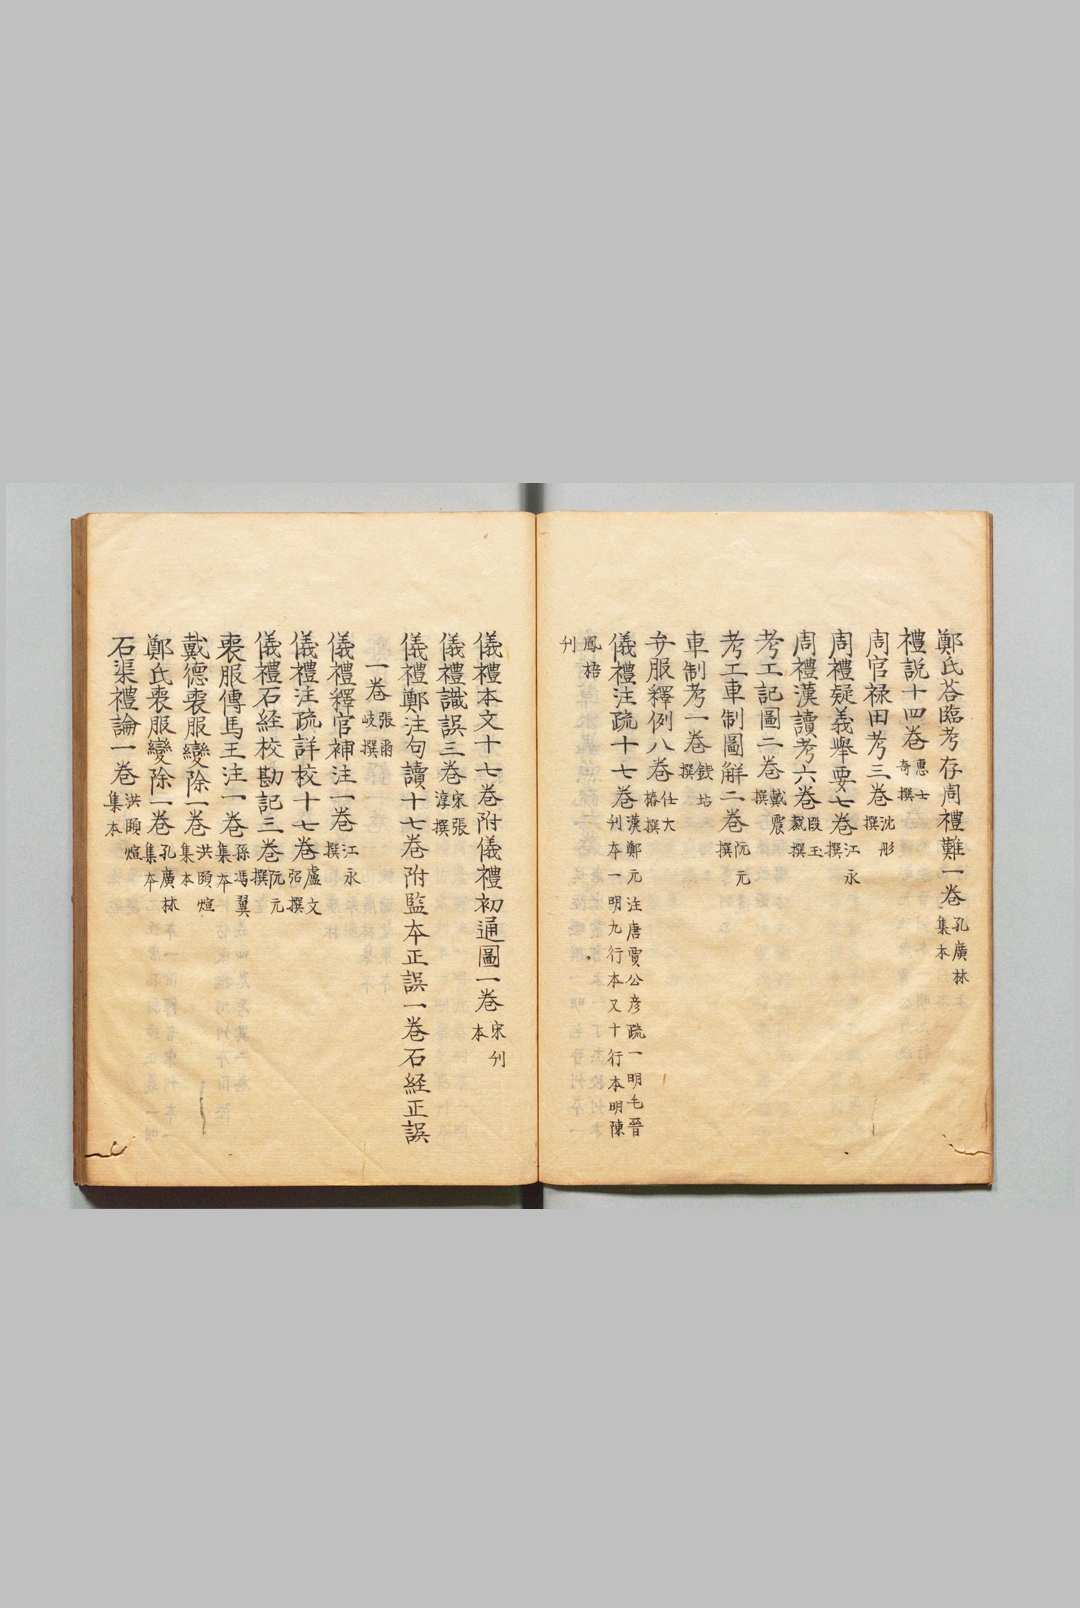 鄭氏荅臨考存周禮難一卷 孔廣林集本
禮說十四卷 惠士奇撰
周官禄田考三卷 沈彤撰
周禮疑義舉要七卷 江永撰
周禮漢讀考六卷 段玉裁撰
考工記圖二卷 戴震撰
考工車制圖解二卷 阮元撰
車制考一卷 錢坫撰
弁服釋例八卷 任大椿撰
儀禮注疏十七卷 漢鄭元注唐賈公彦疏一明毛晉刊本一明九行本又十行本明陳
鳳梧刊
儀禮本文十七卷附儀禮初通圖一卷 宋刋本
儀禮識誤三卷 宋張淳撰
儀禮鄭注句讀十七卷附監本正誤一卷石經正誤
一卷 張爾岐撰
儀禮釋官補注一卷 江永撰
儀禮注疏詳校十七卷 盧文弨撰
儀禮石經校勘記三卷 阮元撰
喪服傳馬王注一卷 孫馮翼集本
戴德喪服變除一卷 洪頤煊集本
鄭氏喪服變除一卷 孔廣林集本
石渠禮論一卷 洪頤煊集本